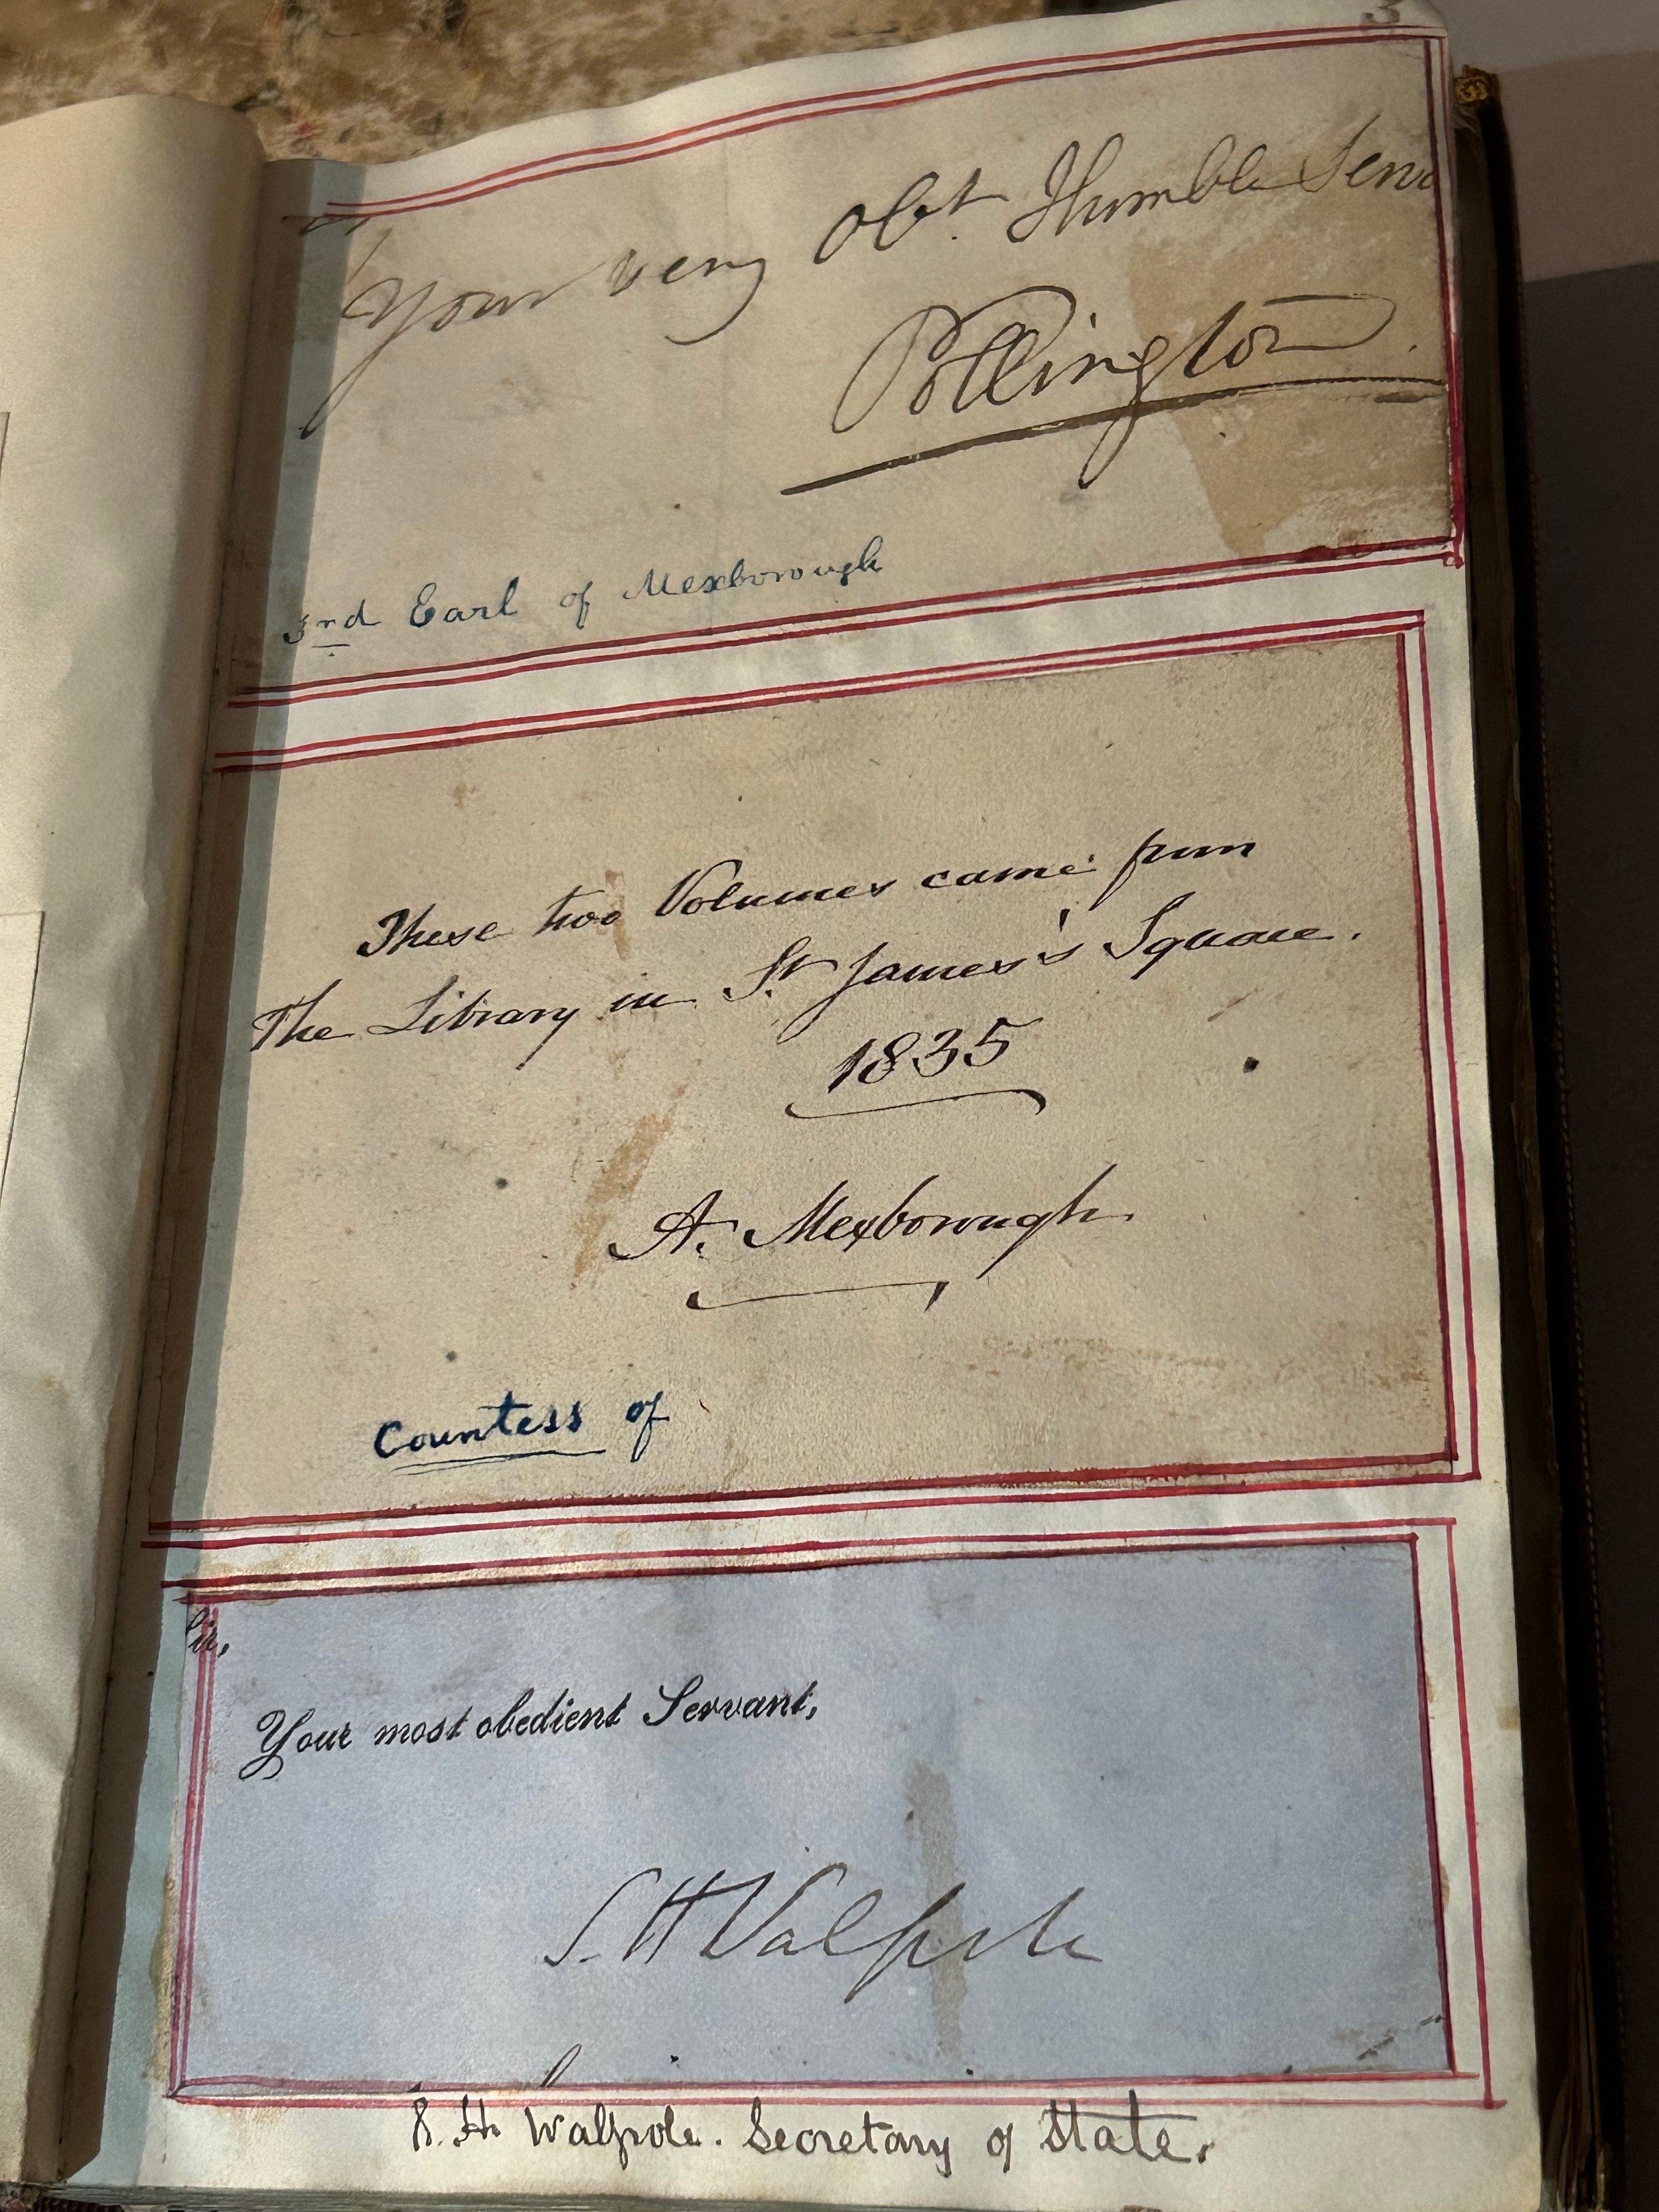 3
Your very Obt. Humble Serv
Pollington
3rd Earl of Mexborough
These two Volumes came from
The Library in St. James's Square.
1835
A. Mexborough
Countess of
Sir,
Your most obedient Servant,
S. H Walpole
S. H. Walpole. Secretary of State.